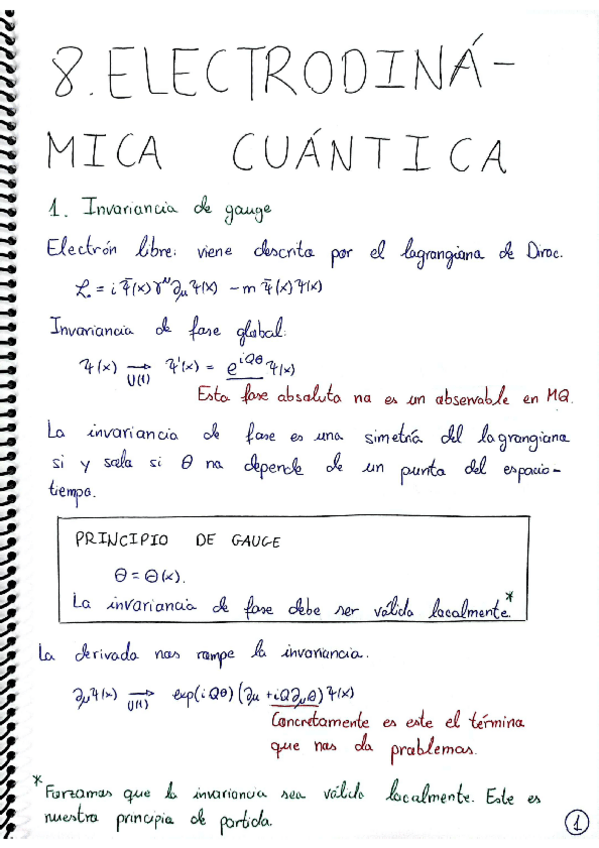 8. ELECTRODINÁ-
MICA CUÁNTICA
1. Invariancia de gauge
Electrón libre: viene descrito por el lagrangiano de Dirac.
ℒ₀ = i Ψ̄(x) γ^μ ∂_μ Ψ(x) − m Ψ̄(x) Ψ(x)
Invariancia de fase global:
Ψ(x) →_{U(1)} Ψ'(x) = e^{iQθ} Ψ(x)
Esta fase absoluta no es un observable en MQ.
La invariancia de fase es una simetría del lagrangiano
si y solo si θ no depende de un punto del espacio-
tiempo.
PRINCIPIO DE GAUGE
θ = θ(x).
La invariancia de fase debe ser válida localmente.*
La derivada nos rompe la invariancia.
∂_μ Ψ(x) →_{U(1)} exp(iQθ) (∂_μ + iQ∂_μθ) Ψ(x)
Concretamente es este el término
que nos da problemas.
* Forzamos que la invariancia sea válida localmente. Este es
nuestro principio de partida.
1